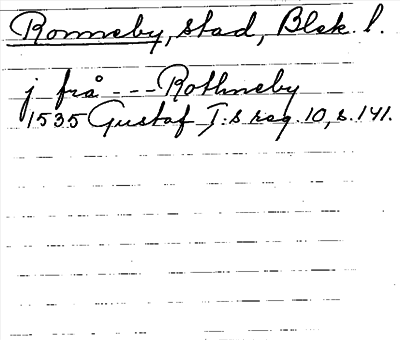 Ronneby, stad, Blek. l.
j frå --- Rothneby
1535 Gustaf I:s reg. 10, s. 141.